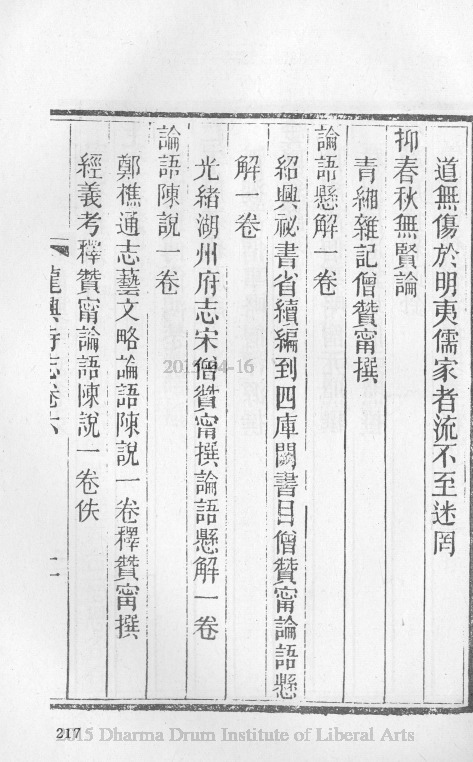 道無傷於明夷儒家者流不至迷罔
抑春秋無賢論
青緗雜記僧贊甯撰
論語懸解一卷
紹興祕書省續編到四庫闕書目僧贊甯論語懸
解一卷
光緒湖州府志宋僧贊甯撰論語懸解一卷
論語陳說一卷
鄭樵通志藝文略論語陳說一卷釋贊甯撰
經義考釋贊甯論語陳說一卷佚
龍興寺志卷六
217
2015 Dharma Drum Institute of Liberal Arts